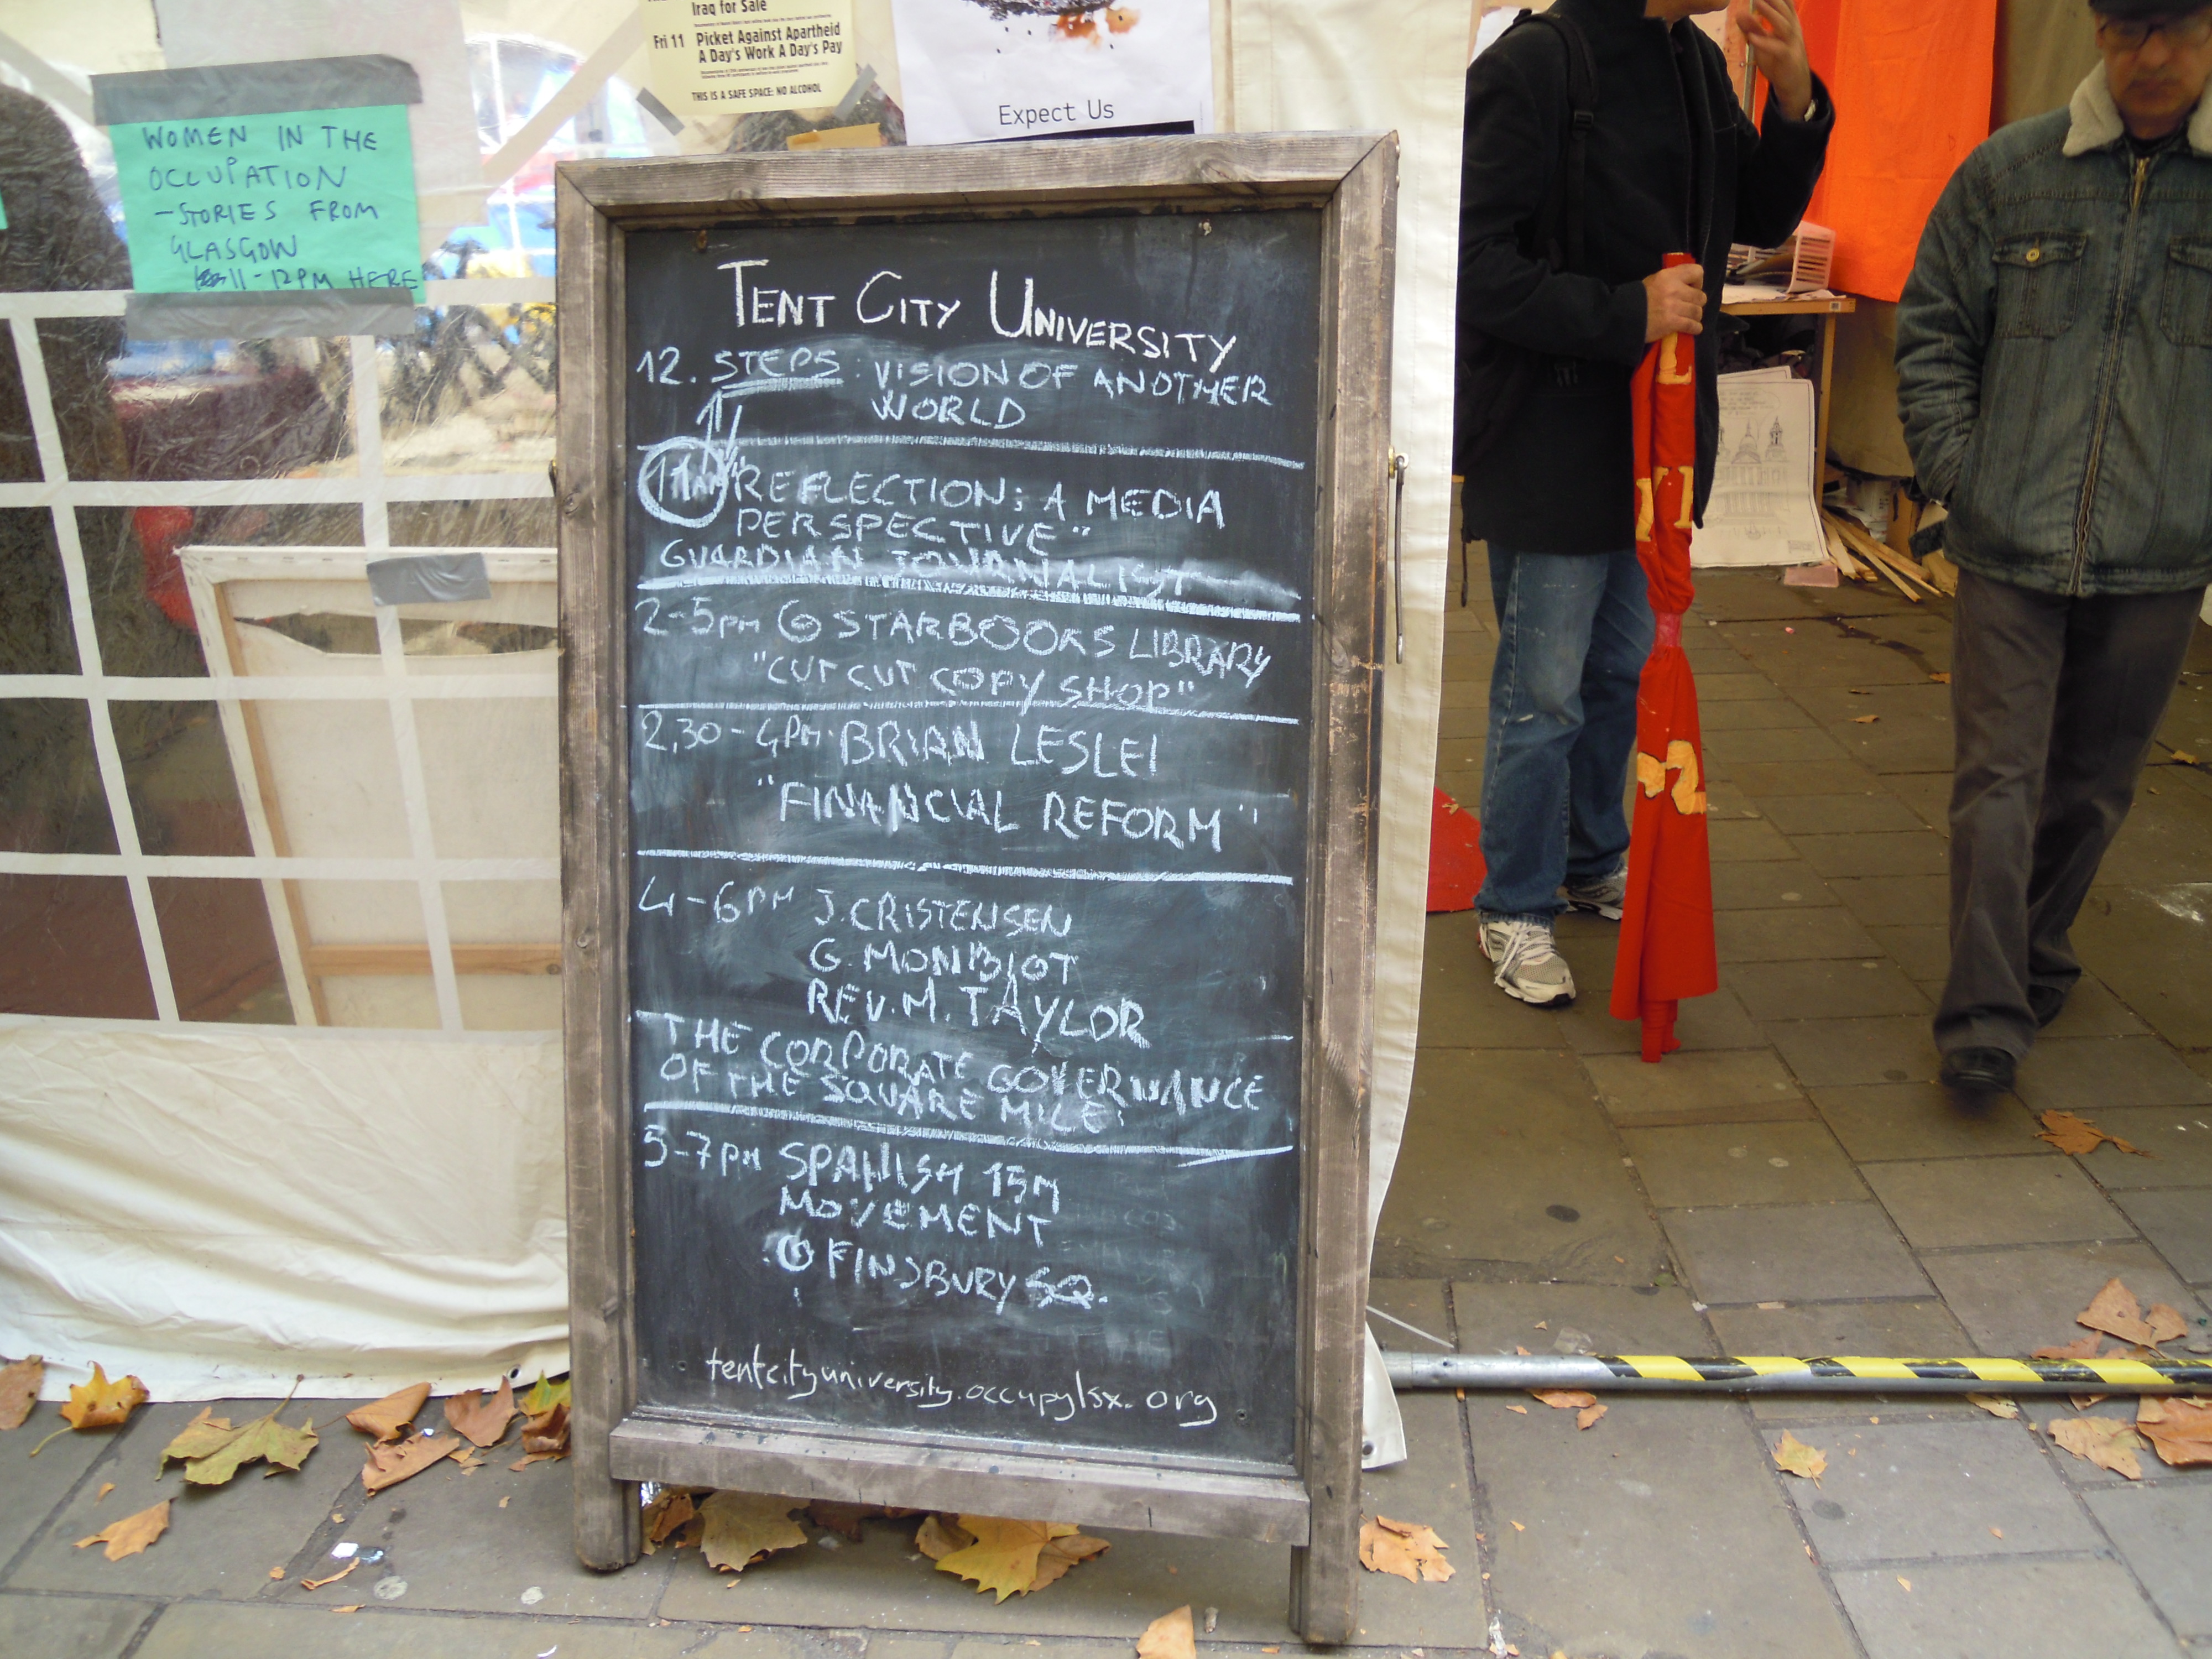 Iraq for Sale
Fri 11 Picket Against Apartheid
A Day's Work A Day's Pay
THIS IS A SAFE SPACE: NO ALCOHOL
Expect Us
WOMEN IN THE
OCCUPATION
- STORIES FROM
GLASGOW
11-12PM HERE
TENT CITY UNIVERSITY
12. STEPS: VISION OF ANOTHER
WORLD
11AM "REFLECTION; A MEDIA
PERSPECTIVE"
GUARDIAN JOURNALIST
2-5PM @ STARBOOKS LIBRARY
"CUT CUT COPY SHOP"
2,30-4PM. BRIAN LESLEI
"FINANCIAL REFORM"
4-6PM J. CRISTENSEN
G. MONBIOT
REV. M. TAYLOR
THE CORPORATE GOVERNANCE
OF THE SQUARE MILE
5-7PM SPANISH 15M
MOVEMENT
@ FINSBURY SQ.
tentcityuniversity.occupylsx.org